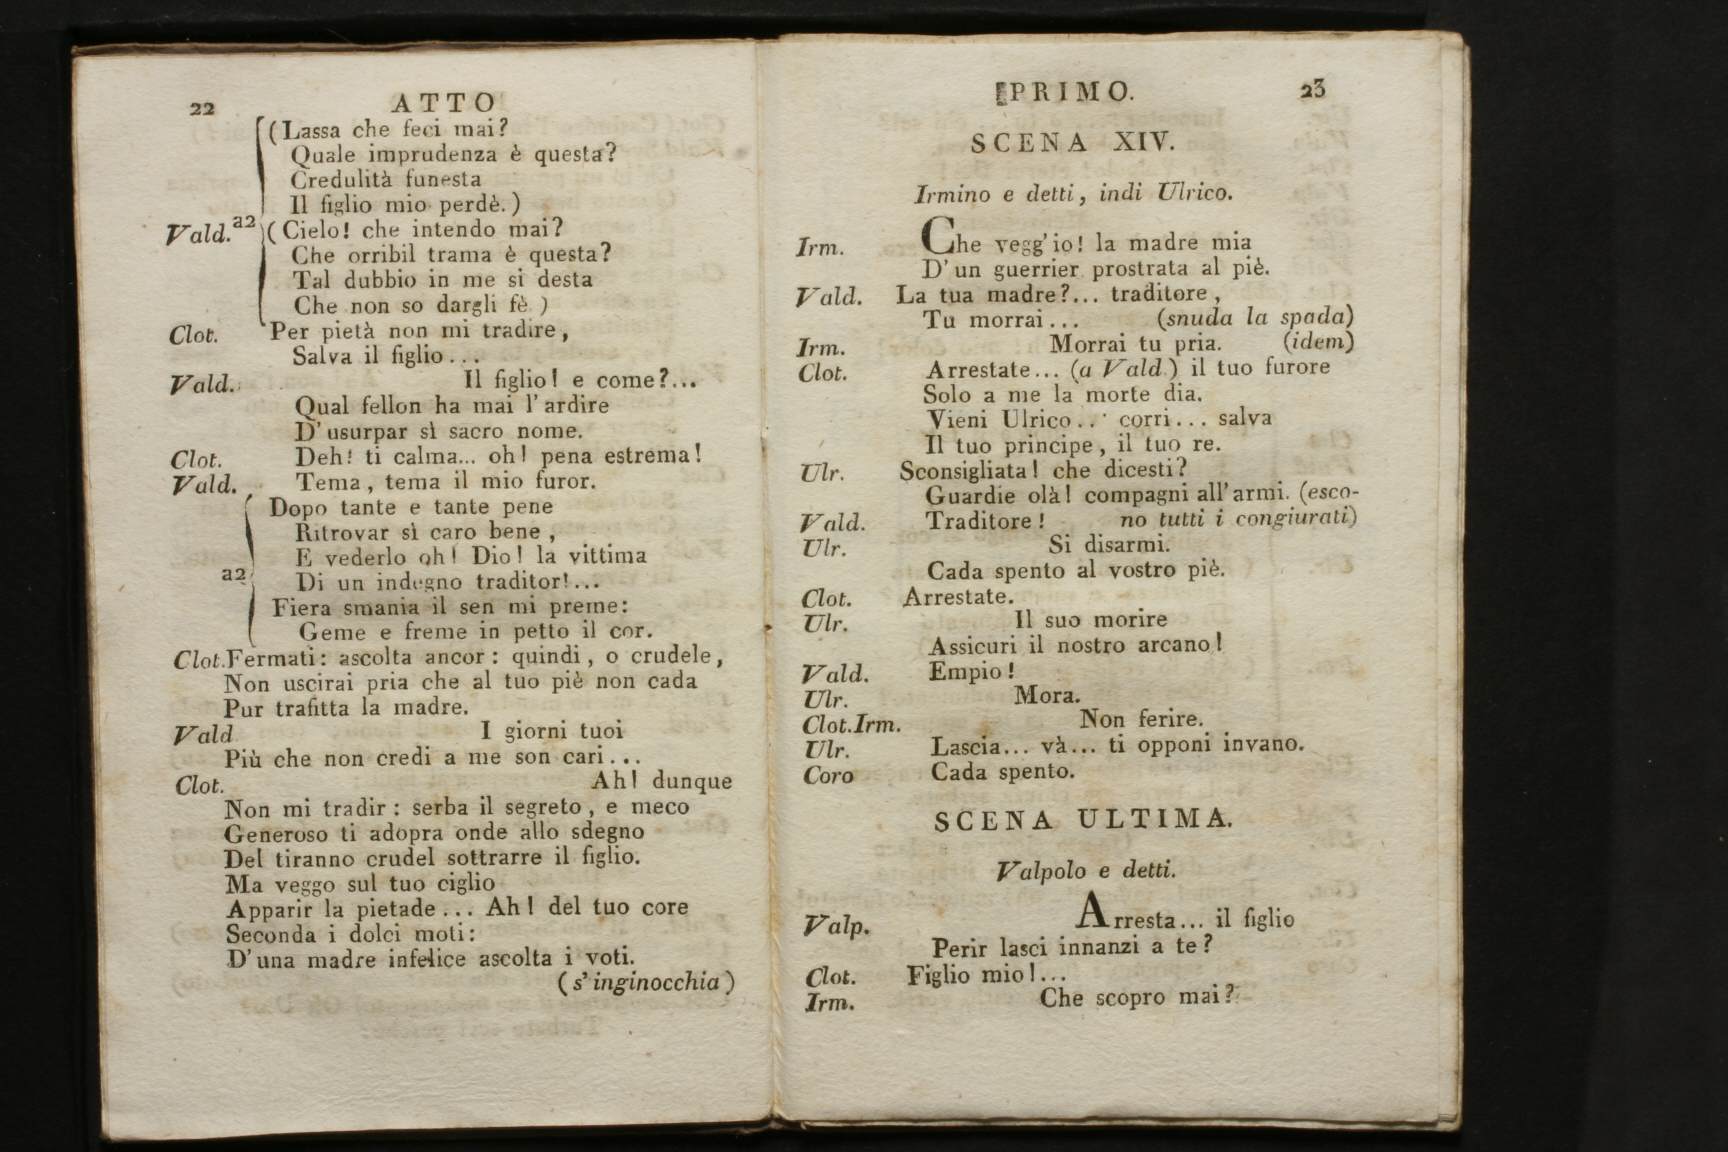 22 ATTO
(Lassa che feci mai?
Quale imprudenza è questa?
Credulità funesta
Il figlio mio perdè.)
Vald. a2 (Cielo! che intendo mai?
Che orribil trama è questa?
Tal dubbio in me si desta
Che non so dargli fè )
Clot. Per pietà non mi tradire,
Salva il figlio...
Vald. Il figlio! e come?...
Qual fellon ha mai l'ardire
D'usurpar sì sacro nome.
Clot. Deh! ti calma... oh! pena estrema!
Vald. Tema, tema il mio furor.
Dopo tante e tante pene
Ritrovar sì caro bene,
E vederlo oh! Dio! la vittima
a2 Di un indegno traditor!...
Fiera smania il sen mi preme:
Geme e freme in petto il cor.
Clot. Fermati: ascolta ancor: quindi, o crudele,
Non uscirai pria che al tuo piè non cada
Pur trafitta la madre.
Vald I giorni tuoi
Più che non credi a me son cari...
Clot. Ah! dunque
Non mi tradir: serba il segreto, e meco
Generoso ti adopra onde allo sdegno
Del tiranno crudel sottrarre il figlio.
Ma veggo sul tuo ciglio
Apparir la pietade... Ah! del tuo core
Seconda i dolci moti:
D'una madre infelice ascolta i voti.
(s'inginocchia)
PRIMO. 23
SCENA XIV.
Irmino e detti, indi Ulrico.
Irm. Che vegg'io! la madre mia
D'un guerrier prostrata al piè.
Vald. La tua madre?... traditore,
Tu morrai... (snuda la spada)
Irm. Morrai tu pria. (idem)
Clot. Arrestate... (a Vald.) il tuo furore
Solo a me la morte dia.
Vieni Ulrico... corri... salva
Il tuo principe, il tuo re.
Ulr. Sconsigliata! che dicesti?
Guardie olà! compagni all'armi. (esco-
Vald. Traditore! no tutti i congiurati)
Ulr. Si disarmi.
Cada spento al vostro piè.
Clot. Arrestate.
Ulr. Il suo morire
Assicuri il nostro arcano!
Vald. Empio!
Ulr. Mora.
Clot. Irm. Non ferire.
Ulr. Lascia... và... ti opponi invano.
Coro Cada spento.
SCENA ULTIMA.
Valpolo e detti.
Valp. Arresta... il figlio
Perir lasci innanzi a te?
Clot. Figlio mio!...
Irm. Che scopro mai?